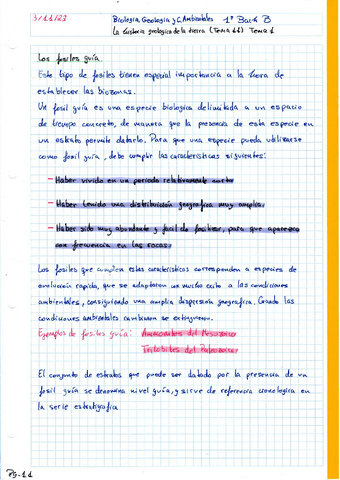 3/11/23
Biología, Geología y C. Ambientales 1º Bach B
La historia geológica de la tierra (Tema 11) Tema 1
Los fósiles guía.
Este tipo de fósiles tienen especial importancia a la hora de
establecer las biozonas.
Un fósil guía es una especie biológica delimitada a un espacio
de tiempo concreto, de manera que la presencia de esta especie en
un estrato permite datarlo. Para que una especie pueda utilizarse
como fósil guía, debe cumplir las características siguientes:
- Haber vivido en un período relativamente corto
- Haber tenido una distribución geográfica muy amplia.
- Haber sido muy abundante y fácil de fosilizar, para que aparezca
con frecuencia en las rocas.
Los fósiles que cumplen estas características corresponden a especies de
evolución rápida, que se adaptaron con mucho éxito a las condiciones
ambientales, consiguiendo una amplia dispersión geográfica. Cuando las
condiciones ambientales cambiaron se extinguieron.
Ejemplos de fósiles guía: Ammonites del Mesozoico
Trilobites del Paleozoico
El conjunto de estratos que puede ser datado por la presencia de un
fósil guía se denomina nivel guía, y sirve de referencia cronológica en
la serie estratigráfica
Pg-11